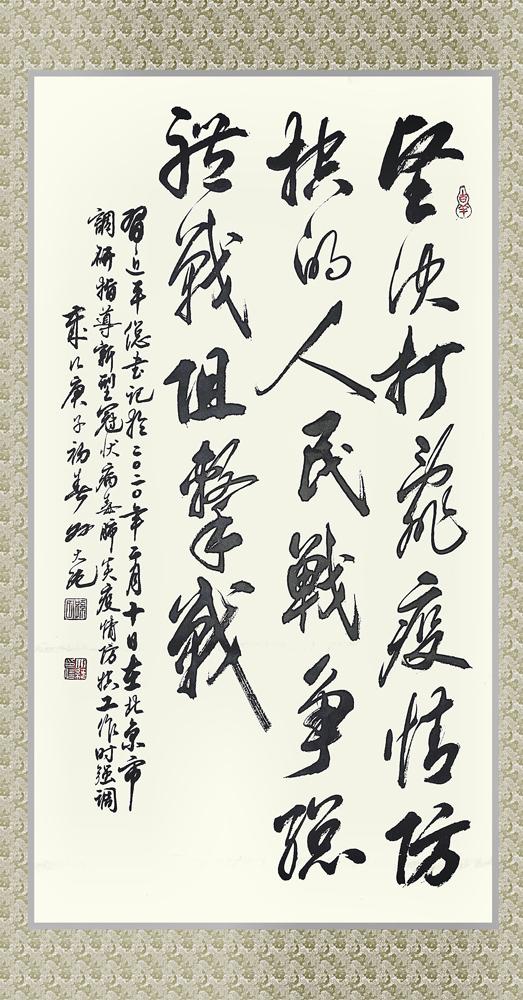 堅决打贏疫情防
控的人民戰争總
體戰阻擊戰
習近平總書記於二〇二〇年二月十日在北京市
調研指導新型冠狀病毒肺炎疫情防控工作时强調
歲次庚子初春